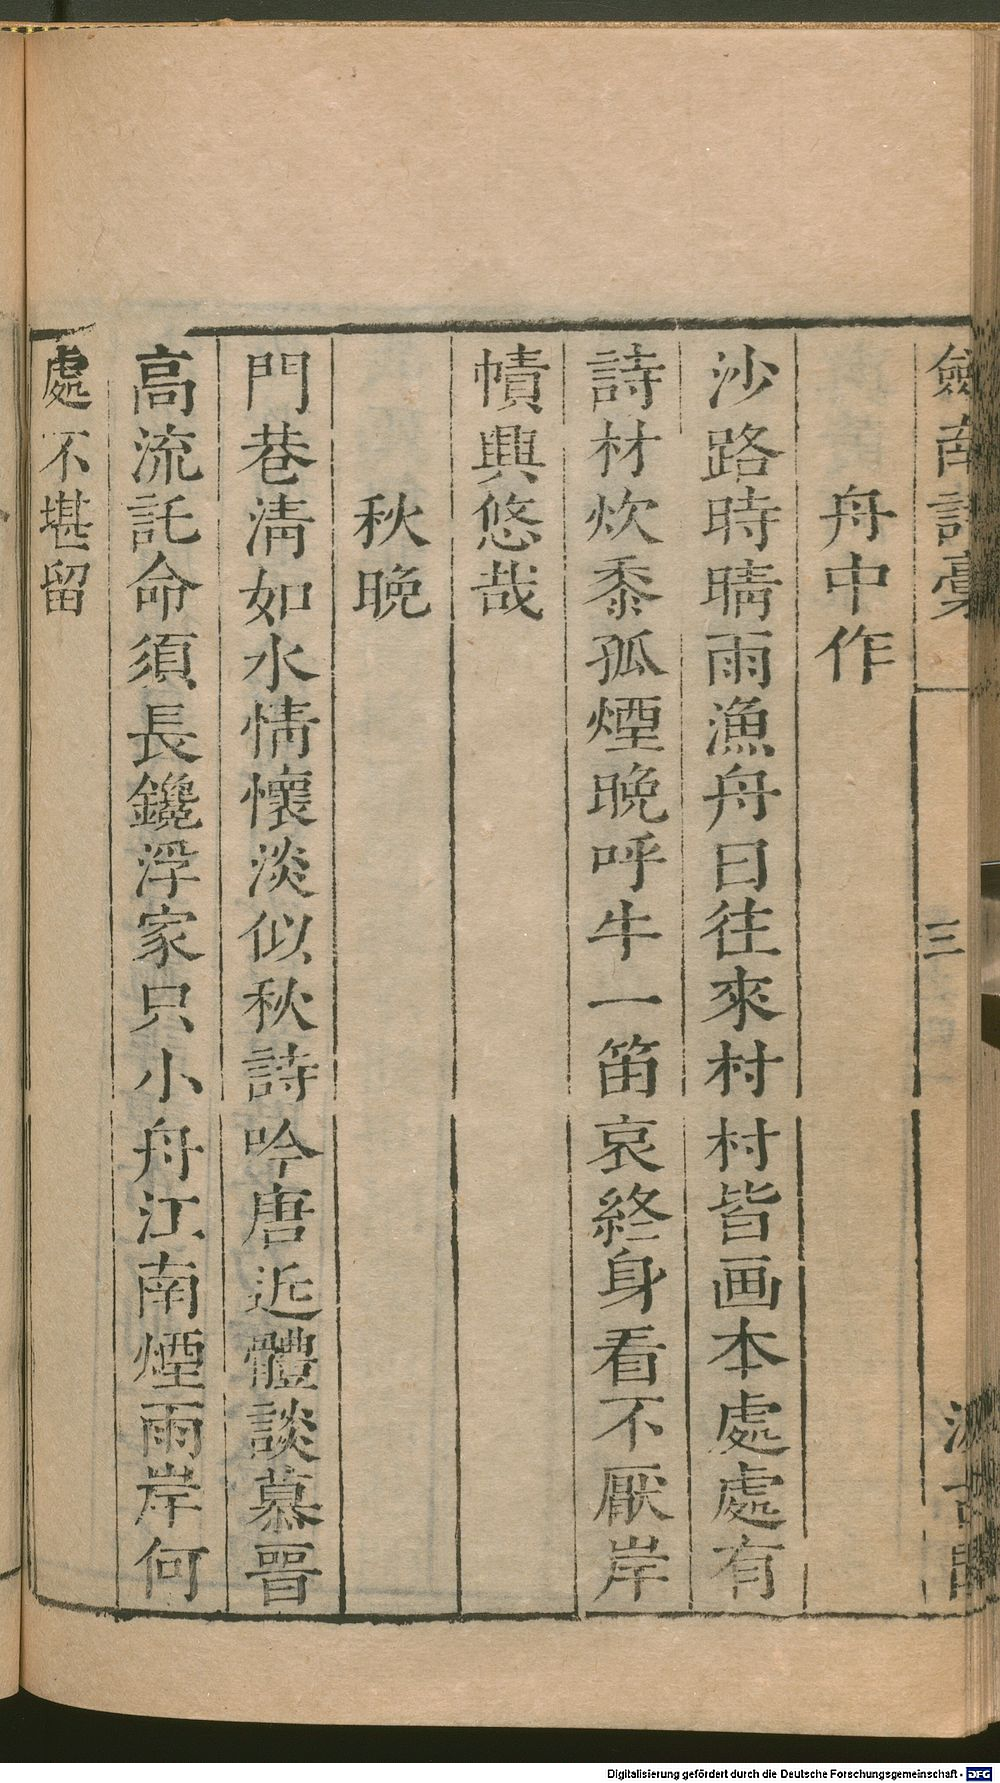 劍南詩稾　三　汲古閣
舟中作
沙路時晴雨漁舟日往來村村皆画本處處有
詩材炊黍孤煙晚呼牛一笛哀終身看不厭岸
幘興悠哉
秋晚
門巷淸如水情懷淡似秋詩吟唐近體談慕晉
高流託命須長鑱浮家只小舟江南煙雨岸何
處不堪留
Digitalisierung gefördert durch die Deutsche Forschungsgemeinschaft - DFG